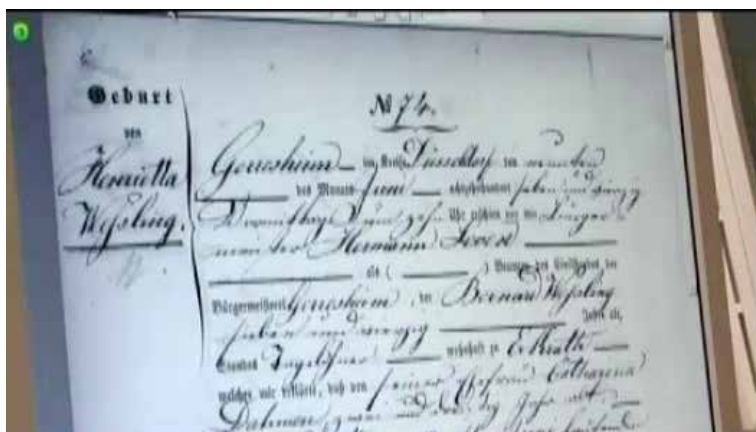 Geburt
von
Henrietta
Weßling.
№ 74.
Gerresheim im Kreise Düsseldorf den neunten
des Monats Juni achtzehnhundert sieben und vierzig
Vormittags um zehn Uhr erschien vor mir Bürger-
meister Hermann
als ( ) Beamten des Civilstandes der
Bürgermeisterei Gerresheim, der Bernard Weßling
sieben und vierzig Jahre alt,
Standes Tagelöhner wohnhaft zu Erkrath
welcher mir erklärte, daß von seiner Ehefrau Catharina
Dahmen, zwei und dreißig Jahr alt